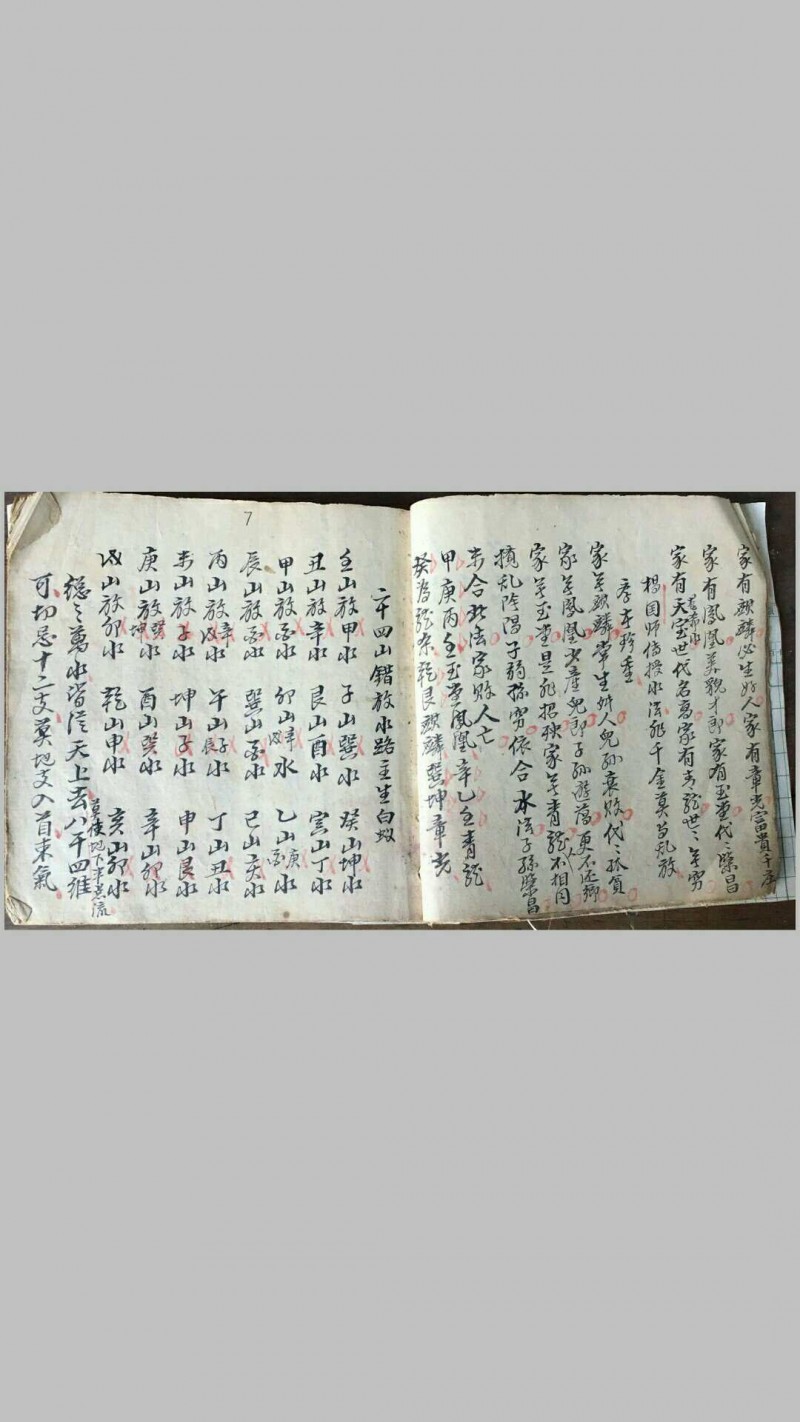 家有麒麟必生好人家有章光富貴千金
家有鳳凰美貌才郎家有玉堂代々榮昌
家有天宝世代名髙家有青龍世々無窮
楊国师傳授水法能千金莫與乱放
家無麒麟常生奸人兒孫衰敗代々孤貧
家無鳳凰少產兒郎子孫遊蕩更不还鄉
家無玉堂是非招殃家無青龍不相同
攪乱陰陽子弱孫窮依合水法子孫榮昌
未合此法家敗人亡
甲庚丙壬玉堂鳳凰辛乙壬青龍
乾艮麒麟巽坤章光
7
二十四山錯放水路主生白蚁
壬山放甲水 子山巽水 癸山坤水
丑山放辛水 艮山酉水 寅山丁水
甲山放水 卯山辛戌水 乙山庚水
辰山放水 巽山水 巳山亥水
丙山放辛戌水 午山子辰水 丁山丑水
未山放子水 坤山子水 申山艮水
庚山放癸坤水 酉山癸水 辛山卯水
戌山放卯水 乾山申水 亥山卯水
總之萬水皆從天上去八干四維
莫使地下半点流
可切忌十二支莫地支入首来氣